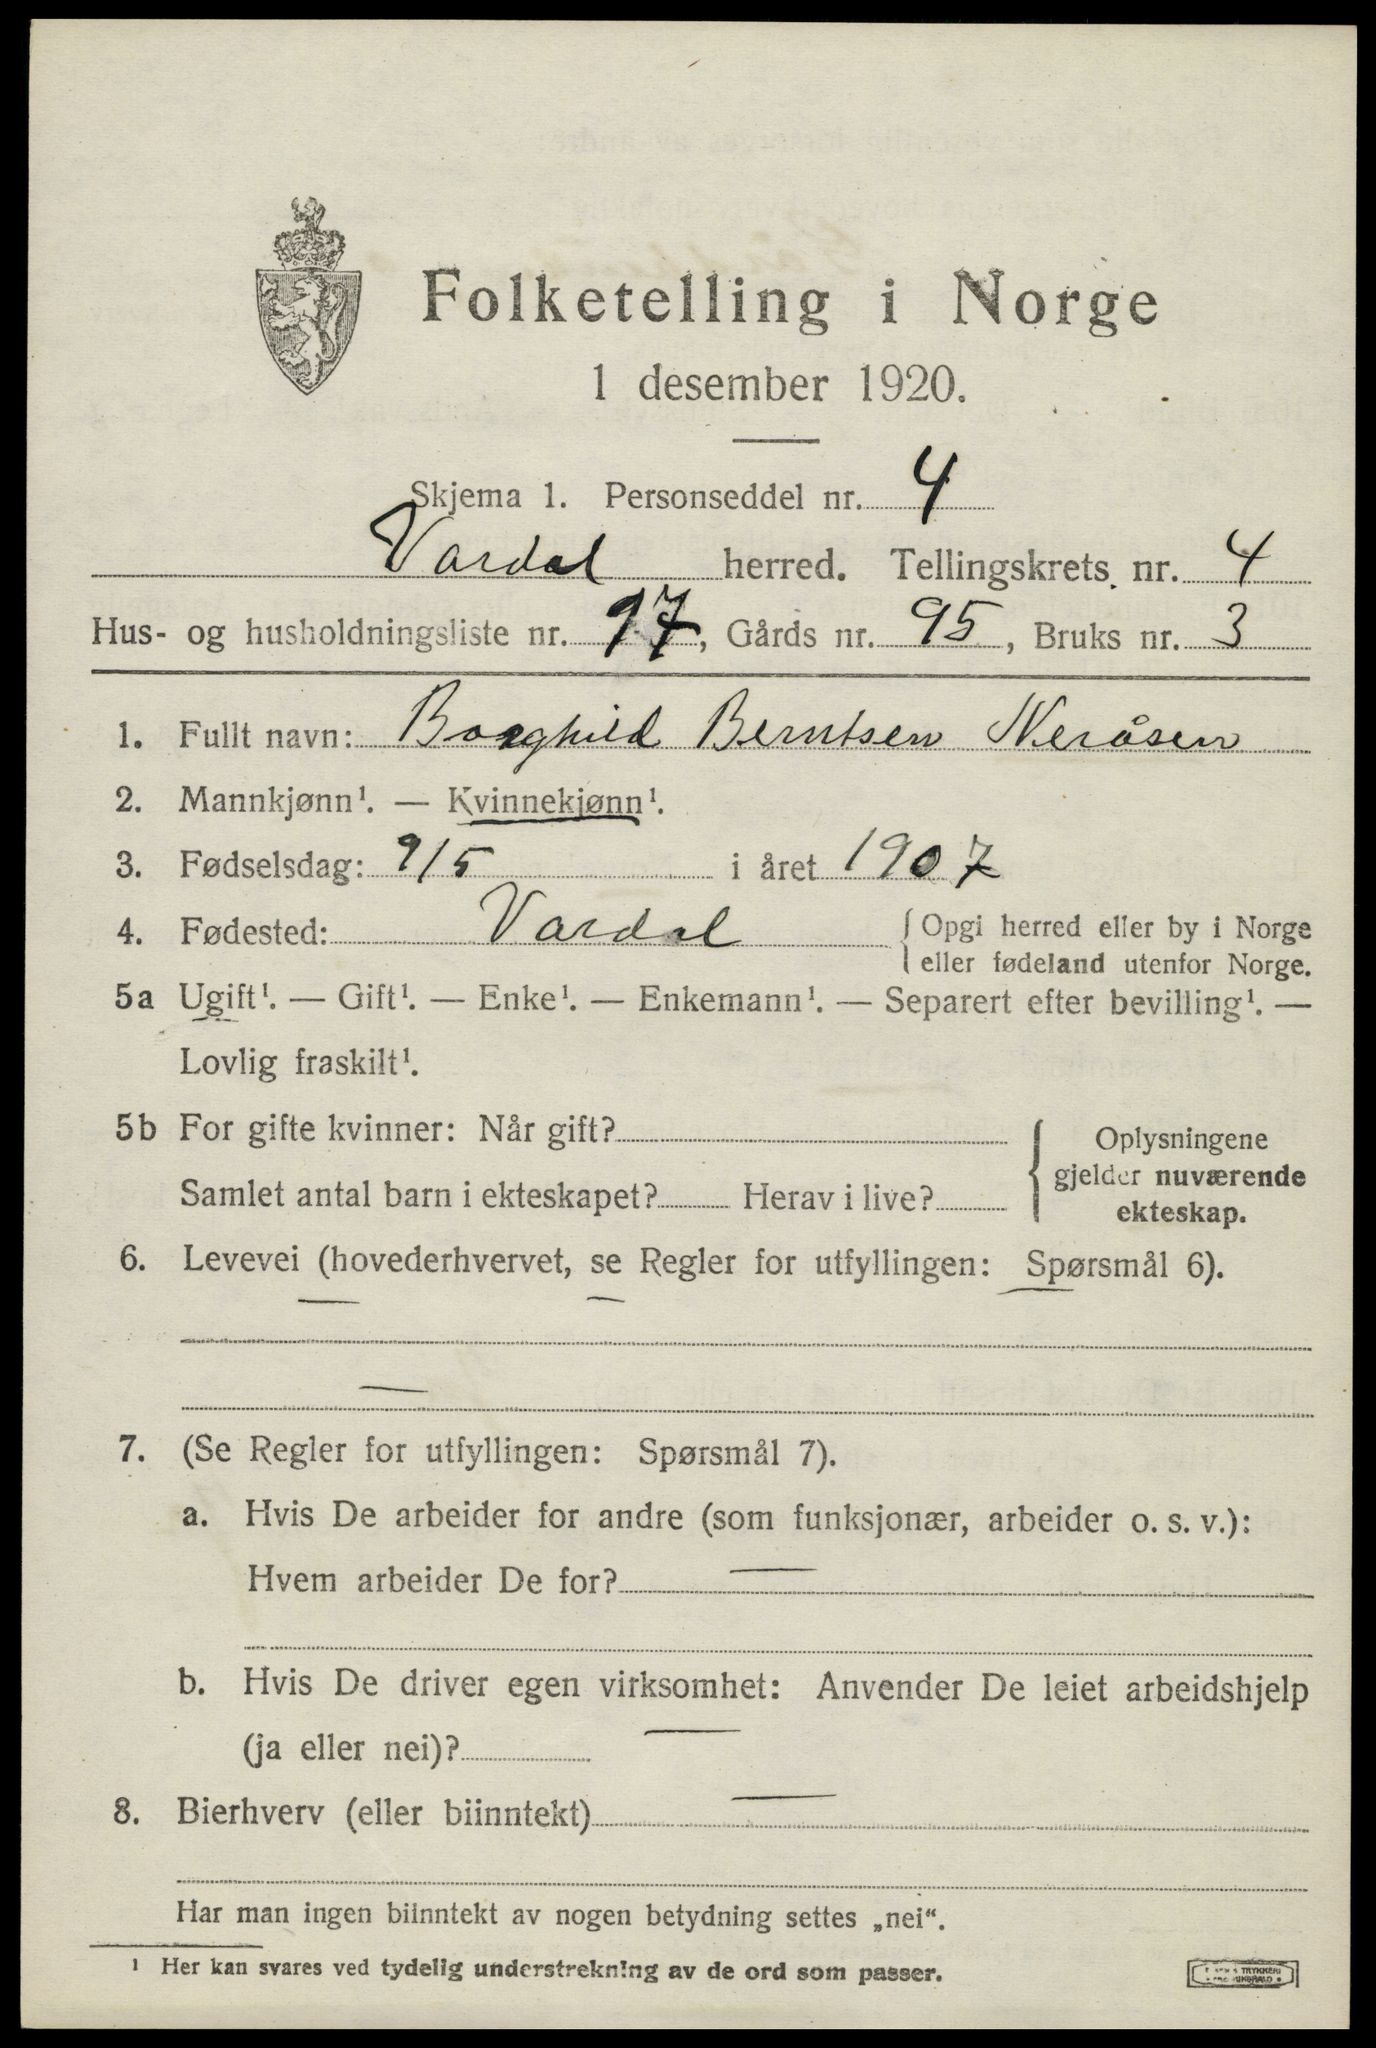 Folketelling i Norge
1 desember 1920.
Skjema 1. Personseddel nr. 4
Vardal herred. Tellingskrets nr. 4
Hus- og husholdningsliste nr. 17, Gårds nr. 95, Bruks nr. 3
1. Fullt navn: Borghild Berntsen Neråsen
2. Mannkjønn¹. — Kvinnekjønn¹.
3. Fødselsdag: 9/5 i året 1907
4. Fødested: Vardal { Opgi herred eller by i Norge
eller fødeland utenfor Norge.
5a Ugift¹. — Gift¹. — Enke¹. — Enkemann¹. — Separert efter bevilling¹. —
Lovlig fraskilt¹.
5b For gifte kvinner: Når gift?
Samlet antal barn i ekteskapet? Herav i live?
{ Oplysningene
gjelder nuværende
ekteskap.
6. Levevei (hovederhvervet, se Regler for utfyllingen: Spørsmål 6).
— —
—
7. (Se Regler for utfyllingen: Spørsmål 7).
a. Hvis De arbeider for andre (som funksjonær, arbeider o. s. v.):
Hvem arbeider De for? —
b. Hvis De driver egen virksomhet: Anvender De leiet arbeidshjelp
(ja eller nei)? —
8. Bierhverv (eller biinntekt) —
Har man ingen biinntekt av nogen betydning settes „nei“.
¹ Her kan svares ved tydelig understrekning av de ord som passer.